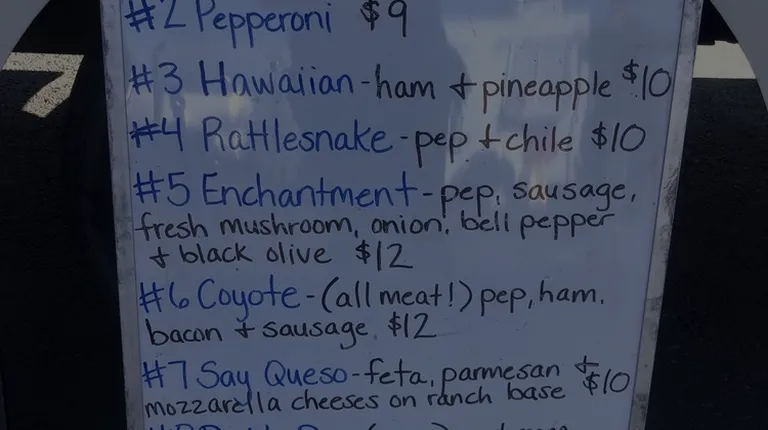 #2 Pepperoni $9
#3 Hawaiian - ham + pineapple $10
#4 Rattlesnake - pep + chile $10
#5 Enchantment - pep, sausage,
fresh mushroom, onion, bell pepper
+ black olive $12
#6 Coyote - (all meat!) pep, ham,
bacon + sausage $12
#7 Say Queso - feta, parmesan +
mozzarella cheeses on ranch base $10